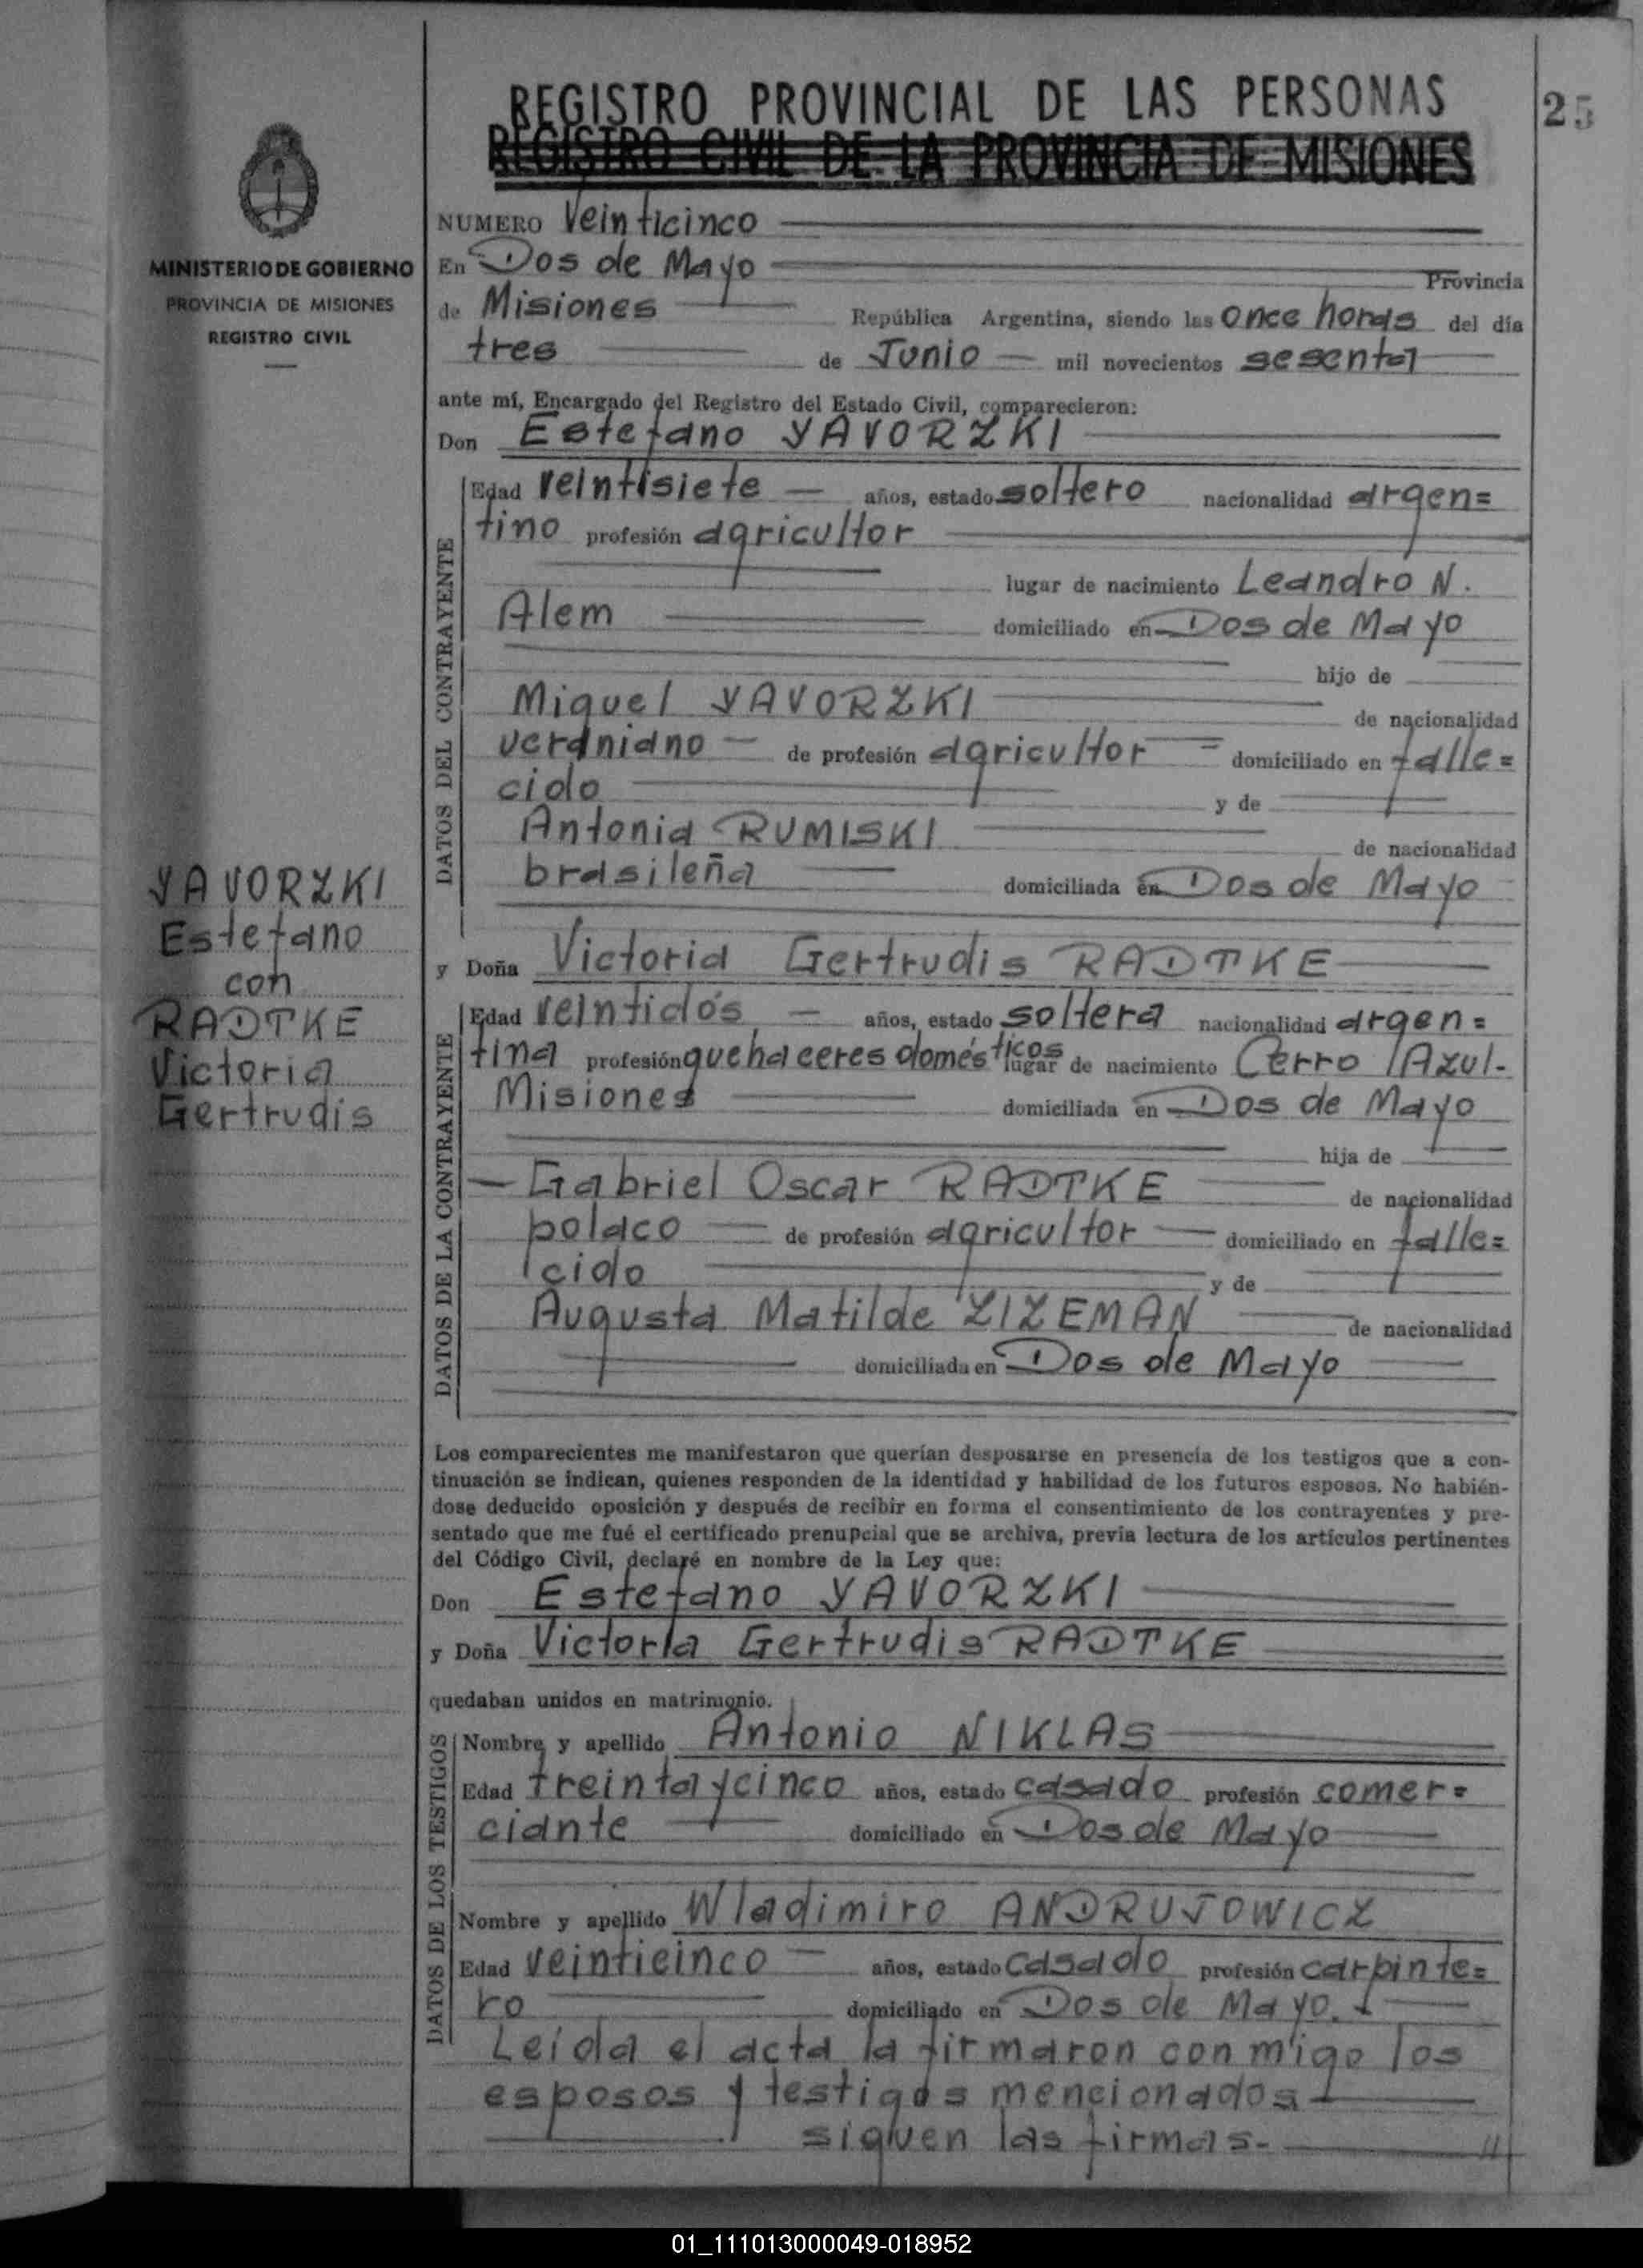 REGISTRO PROVINCIAL DE LAS PERSONAS
25
REGISTRO CIVIL DE LA PROVINCIA DE MISIONES
MINISTERIO DE GOBIERNO
PROVINCIA DE MISIONES
REGISTRO CIVIL
NUMERO Veinticinco
En Dos de Mayo Provincia
de Misiones República Argentina, siendo las once horas del día
tres de Junio mil novecientos sesenta
ante mí, Encargado del Registro del Estado Civil, comparecieron:
Don Estefano YAVORZKI
DATOS DEL CONTRAYENTE
Edad veintisiete años, estado soltero nacionalidad argen=
tino profesión agricultor
lugar de nacimiento Leandro N.
Alem domiciliado en Dos de Mayo
hijo de
Miguel YAVORZKI de nacionalidad
ucraniano de profesión agricultor domiciliado en falle=
cido y de
Antonia RUMISKI de nacionalidad
brasileña domiciliada en Dos de Mayo
YAVORZKI
Estefano
con
RADTKE
Victoria
Gertrudis
y Doña Victoria Gertrudis RADTKE
DATOS DE LA CONTRAYENTE
Edad veintidós años, estado soltera nacionalidad argen=
tina profesión quehaceres domésticos lugar de nacimiento Cerro Azul-
Misiones domiciliada en Dos de Mayo
hija de
Gabriel Oscar RADTKE de nacionalidad
polaco de profesión agricultor domiciliado en falle=
cido y de
Augusta Matilde ZIZEMAN de nacionalidad
domiciliada en Dos de Mayo
Los comparecientes me manifestaron que querían desposarse en presencia de los testigos que a con-
tinuación se indican, quienes responden de la identidad y habilidad de los futuros esposos. No habién-
dose deducido oposición y después de recibir en forma el consentimiento de los contrayentes y pre-
sentado que me fué el certificado prenupcial que se archiva, previa lectura de los artículos pertinentes
del Código Civil, declaré en nombre de la Ley que:
Don Estefano YAVORZKI
y Doña Victoria Gertrudis RADTKE
quedaban unidos en matrimonio.
DATOS DE LOS TESTIGOS
Nombre y apellido Antonio NIKLAS
Edad treinta y cinco años, estado casado profesión comer=
ciante domiciliado en Dos de Mayo
Nombre y apellido Wladimiro ANDRUJOWICZ
Edad veinticinco años, estado casado profesión carpinte=
ro domiciliado en Dos de Mayo.
Leída el acta la firmaron conmigo los
esposos y testigos mencionados
siguen las firmas.-
01_111013000049-018952